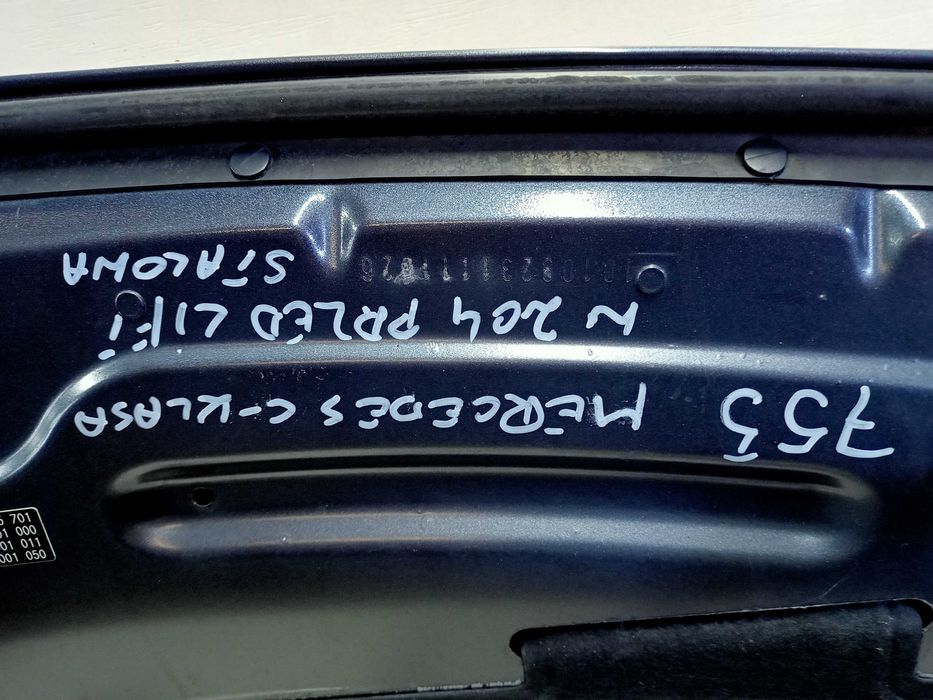 753 MERCEDES C-KLASA
W 204 PRZED LIFT
STALOWA
701
000
01 011
001 050